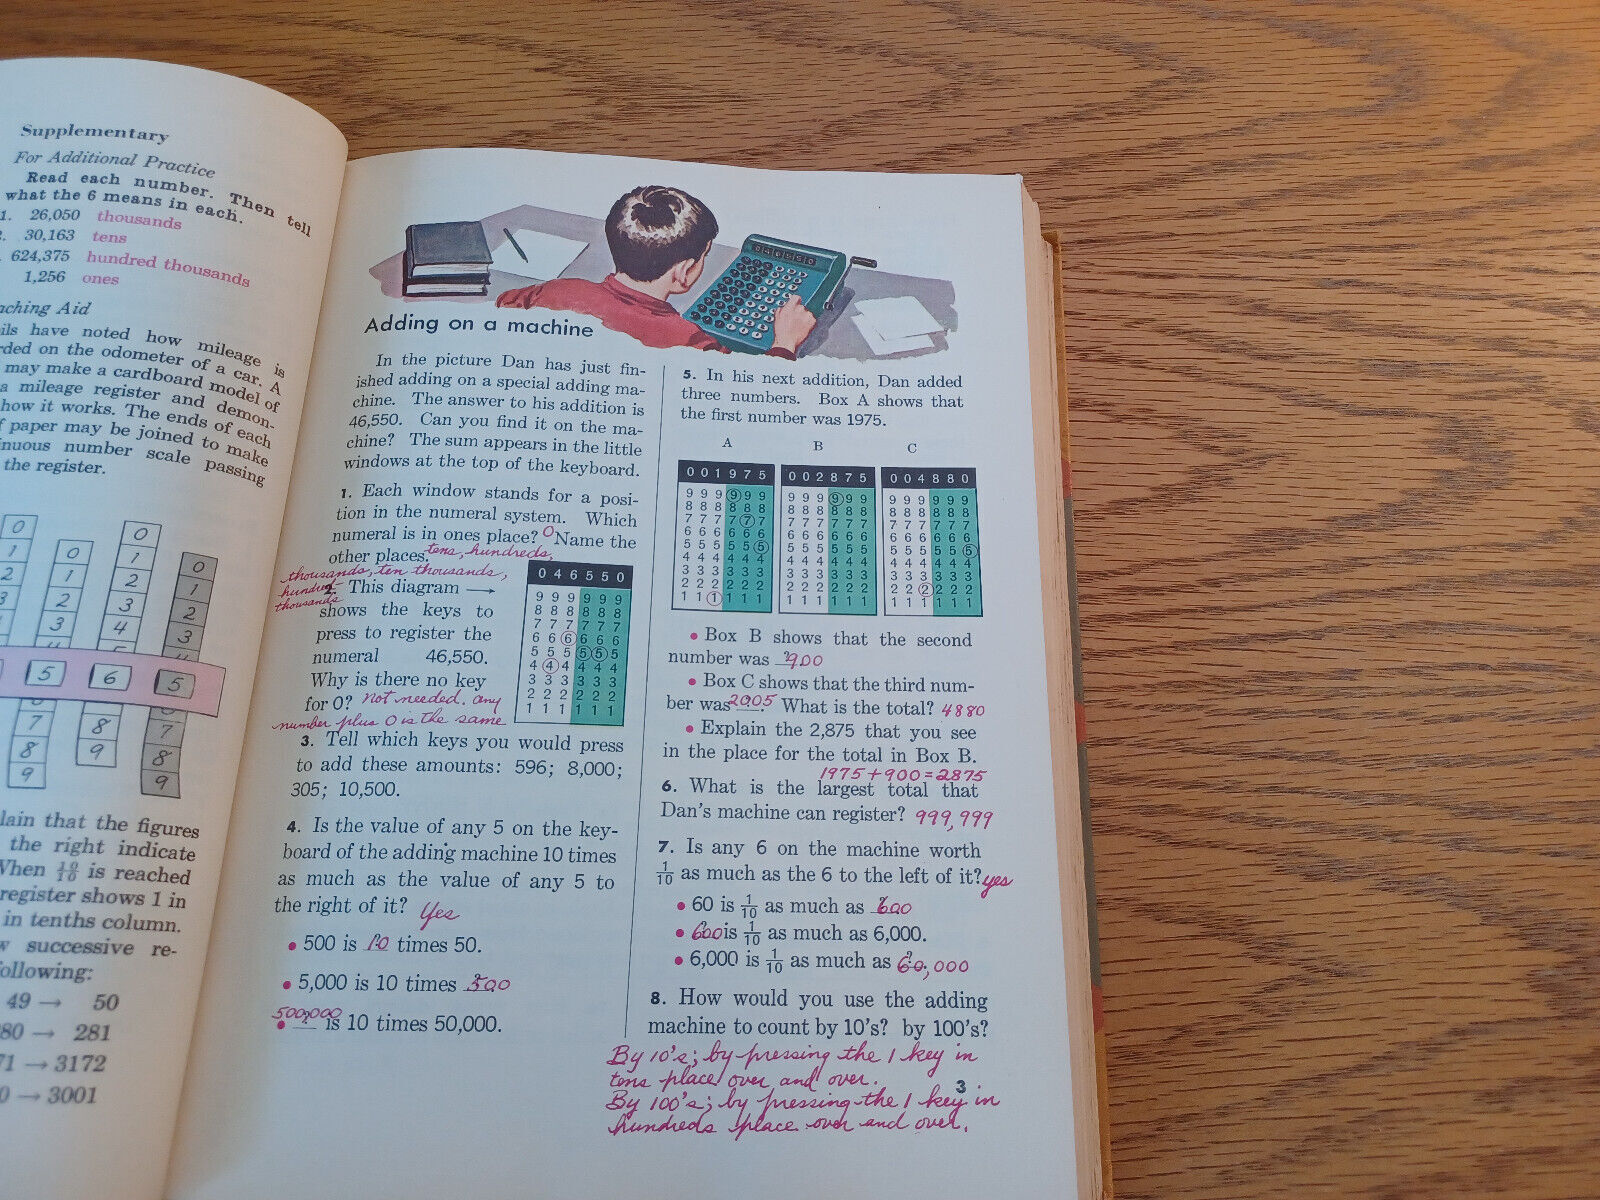 Supplementary
For Additional Practice
Read each number. Then tell
what the 6 means in each.
1. 26,050 thousands
30,163 tens
624,375 hundred thousands
1,256 ones
Aid
have noted how mileage is
on the odometer of a car. A
may make a cardboard model of
a mileage register and demon-
how it works. The ends of each
of paper may be joined to make
number scale passing
the register.
0 0 0 0
1 1 1 1
2 2 2 2
3 3 3 3
4
5 6 5
7 8 7
8 9 8
9 9
that the figures
the right indicate
When 10/10 is reached
register shows 1 in
in tenths column.
successive re-
following:
49 → 50
280 → 281
→ 3172
→ 3001
Adding on a machine
In the picture Dan has just fin-
ished adding on a special adding ma-
chine. The answer to his addition is
46,550. Can you find it on the ma-
chine? The sum appears in the little
windows at the top of the keyboard.
1. Each window stands for a posi-
tion in the numeral system. Which
numeral is in ones place? 0 Name the
other places. tens, hundreds,
thousands, ten thousands,
hundred
thousands
2. This diagram →
shows the keys to
press to register the
numeral 46,550.
Why is there no key
for 0? Not needed. Any
number plus 0 is the same
0 4 6 5 5 0
9 9 9 9 9 9
8 8 8 8 8 8
7 7 7 7 7 7
6 6 6 6 6 6
5 5 5 5 5 5
4 4 4 4 4 4
3 3 3 3 3 3
2 2 2 2 2 2
1 1 1 1 1 1
3. Tell which keys you would press
to add these amounts: 596; 8,000;
305; 10,500.
4. Is the value of any 5 on the key-
board of the adding machine 10 times
as much as the value of any 5 to
the right of it? Yes
• 500 is 10 times 50.
• 5,000 is 10 times 500
• 500,000 is 10 times 50,000.
5. In his next addition, Dan added
three numbers. Box A shows that
the first number was 1975.
A B C
0 0 1 9 7 5 0 0 2 8 7 5 0 0 4 8 8 0
9 9 9 9 9 9 9 9 9 9 9 9 9 9 9 9 9 9
8 8 8 8 8 8 8 8 8 8 8 8 8 8 8 8 8 8
7 7 7 7 7 7 7 7 7 7 7 7 7 7 7 7 7 7
6 6 6 6 6 6 6 6 6 6 6 6 6 6 6 6 6 6
5 5 5 5 5 5 5 5 5 5 5 5 5 5 5 5 5 5
4 4 4 4 4 4 4 4 4 4 4 4 4 4 4 4 4 4
3 3 3 3 3 3 3 3 3 3 3 3 3 3 3 3 3 3
2 2 2 2 2 2 2 2 2 2 2 2 2 2 2 2 2 2
1 1 1 1 1 1 1 1 1 1 1 1 1 1 1 1 1 1
• Box B shows that the second
number was 900
• Box C shows that the third num-
ber was 2005. What is the total? 4880
• Explain the 2,875 that you see
in the place for the total in Box B.
1975 + 900 = 2875
6. What is the largest total that
Dan's machine can register? 999,999
7. Is any 6 on the machine worth
1/10 as much as the 6 to the left of it? yes
• 60 is 1/10 as much as 600
• 600 is 1/10 as much as 6,000.
• 6,000 is 1/10 as much as 60,000
8. How would you use the adding
machine to count by 10's? by 100's?
By 10's; by pressing the 1 key in
tens place over and over.
By 100's; by pressing the 1 key in
hundreds place over and over.
3